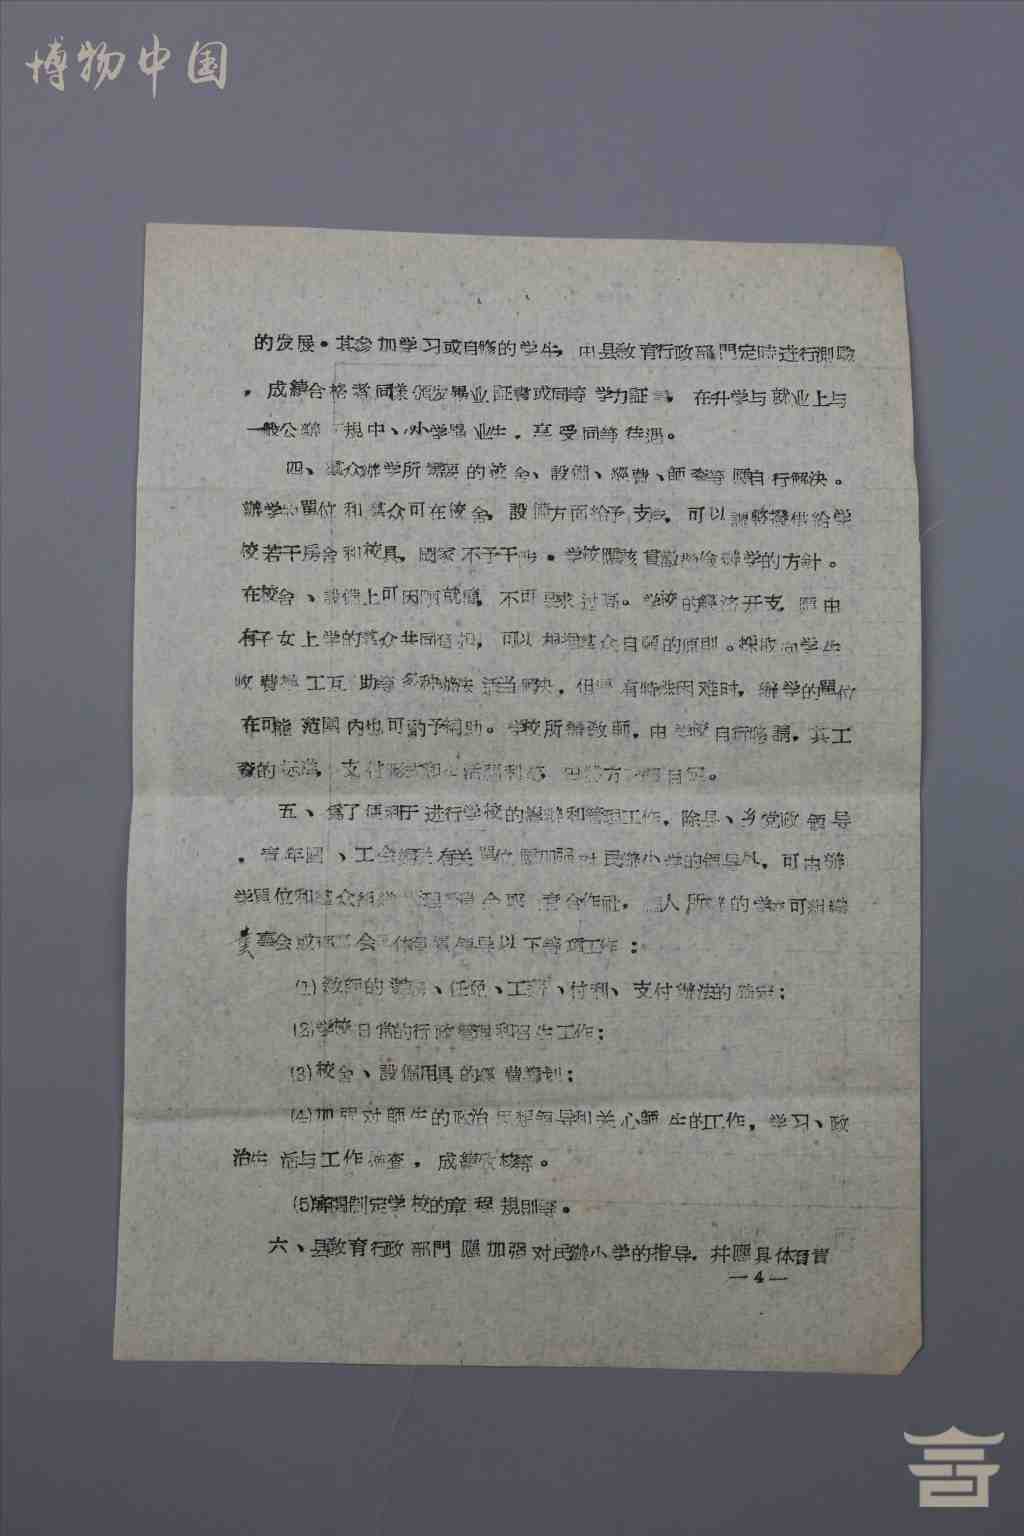 博物中国
的发展。其参加学习或自修的学生，由县教育行政部門定時进行測験
，成績合格者同樣頒发畢业証書或同等学力証書，在升学与就业上与
一般公辦 規中、小学畢业生，享受同等待遇。
四、羣众辦学所需要的校舍、設备、經費、師資等應自行解决。
辦学的單位和羣众可在校舍，設備方面給予支持，可以調整撥供給学
校若干房舍和校具，國家不予干涉。学校應該貫徹勤儉辦学的方針。
在校舍、設備上可因陋就簡，不可要求过高。学校的經济开支，應由
有子女上学的羣众共同負担，可以根据羣众自願的原則。採取向学生
收費 工互助等多种办法适当解决，但 有特殊困难时，辦学的單位
在可能范圍内也可酌予補助。学校所需教師，由学校自行聘請，其工
資的标準，支付形式和生活福利 方 自 。
五、爲了便利于进行学校的 和管理工作，除县、乡党政领导
，青年团、工会 有关單位應加强对民辦小学的领导外，可由辦
学單位和羣众組織 会 合作社， 人所 的学校可組織
董事会或 会 领导以下等項工作：
⑴教師的 、任免、工資、付利、支付辦法的确定；
⑵学校日常的行政管理和 生工作；
⑶校舍、設備用具的經費籌划；
⑷加强对師生的政治思想领导和关心師生的工作，学习、政
治生活与工作檢查，成績 等。
⑸ 制定学校的章程規則等。
六、县教育行政部門應加强对民辦小学的指导，并應具体負責
—4—